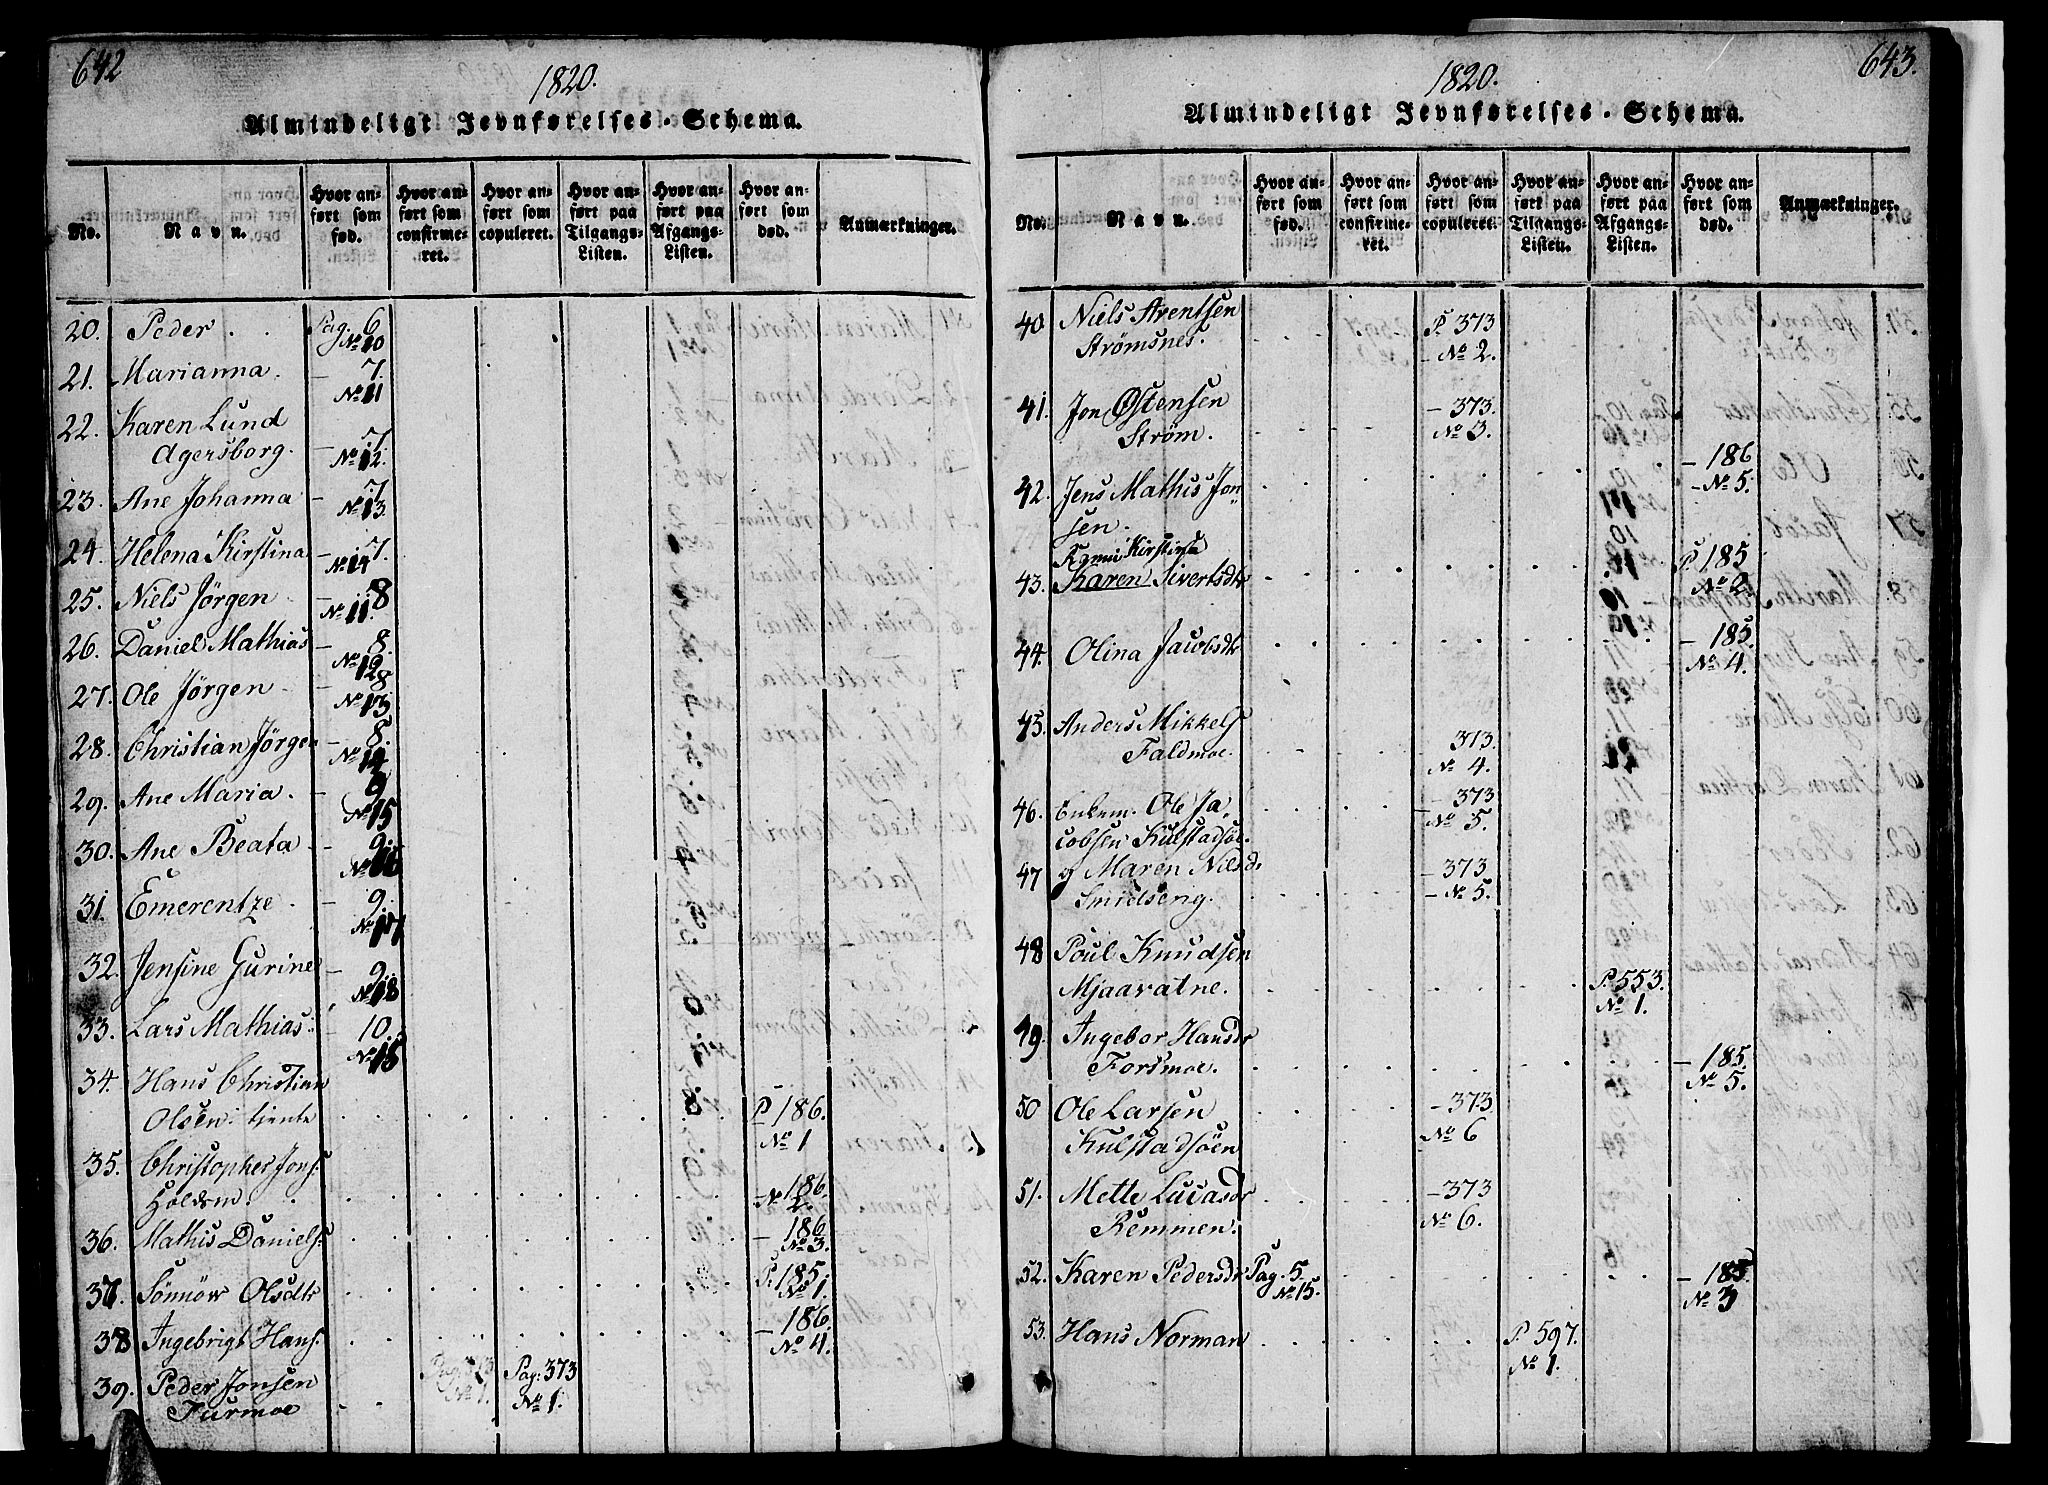 642
1820.
Almindeligt Jevnførelses-Schema.
No.
Navn.
Hvor anført som fød.
Hvor anført som confirmeret.
Hvor anført som copuleret.
Hvor anført paa Tilgangs-Listen.
Hvor anført paa Afgangs-Listen.
Hvor anført som død.
Anmærkninger.
20. Peder . . Pag. 6
No 10
21. Marianna. – 7.
No 11
22. Karen Lund
Agersborg. – 7.
No 12.
23. Ane Johanna – 7.
No 13.
24. Helena Kirstina – 7.
No 14
25. Niels Jörgen – 8
No 11.
26. Daniel Mathias – 8.
No 12
27. Ole Jörgen – 8
No 13
28. Christian Jörgen – 8.
No 14
29. Ane Maria. – 9
No 15
30. Ane Beata – 9.
No 16
31. Emerentze. – 9.
No 17
32. Jensine Gurine – 9.
No 18
33. Lars Mathias – 10.
No 15
34. Hans Christian
Olsen: tjente P. 186.
No 1
35. Christopher Jons:
Holdsm. – 186.
No 2.
36. Mathis Daniels: – 186
No 3.
37. Sönnöw Olsdtr P. 185.
No 1.
38 Ingebrigt Hans. – 186.
No 4.
39. Peder Jonsen Pag: 373
Furmoe No 1. No 1.
643.
1820.
Almindeligt Jevnførelses-Schema.
No.
Navn.
Hvor anført som fød.
Hvor anført som confirmeret.
Hvor anført som copuleret.
Hvor anført paa Tilgangs-Listen.
Hvor anført paa Afgangs-Listen.
Hvor anført som død.
Anmærkninger.
40. Niels Arentsen P. 373
Strømsnes. – No 2.
41. Jon Østensen – 373.
Strøm. No 3.
42. Jens Mathis Jon- – 186
sen. – No 5.
Kirstina
43. Karen Sivertsdtr P. 185
No 2
44. Olina Jacobsdtr – 185.
No 4.
45. Anders Mikkels
Faldmoe. – 373.
No 4.
46. Enkem. Ole Ja- – 373
cobsen Kulstadsöe. – No 5.
47 og Maren Nilsd: – 373
Smidseng. – No 5.
48 Poul Knudsen
Mjaavatne. P. 553.
No 1.
49. Ingebor Hansdr
Forsmoe. – 185.
No 5.
50 Ole Larsen – 373.
Kulstadsöen No 6
51. Mette Lucasdr – 373
Remmen. No 6.
52. Karen Pedersdr Pag. 5. – 185
No 15. No 3
53. Hans Norman P. 597.
No 1.